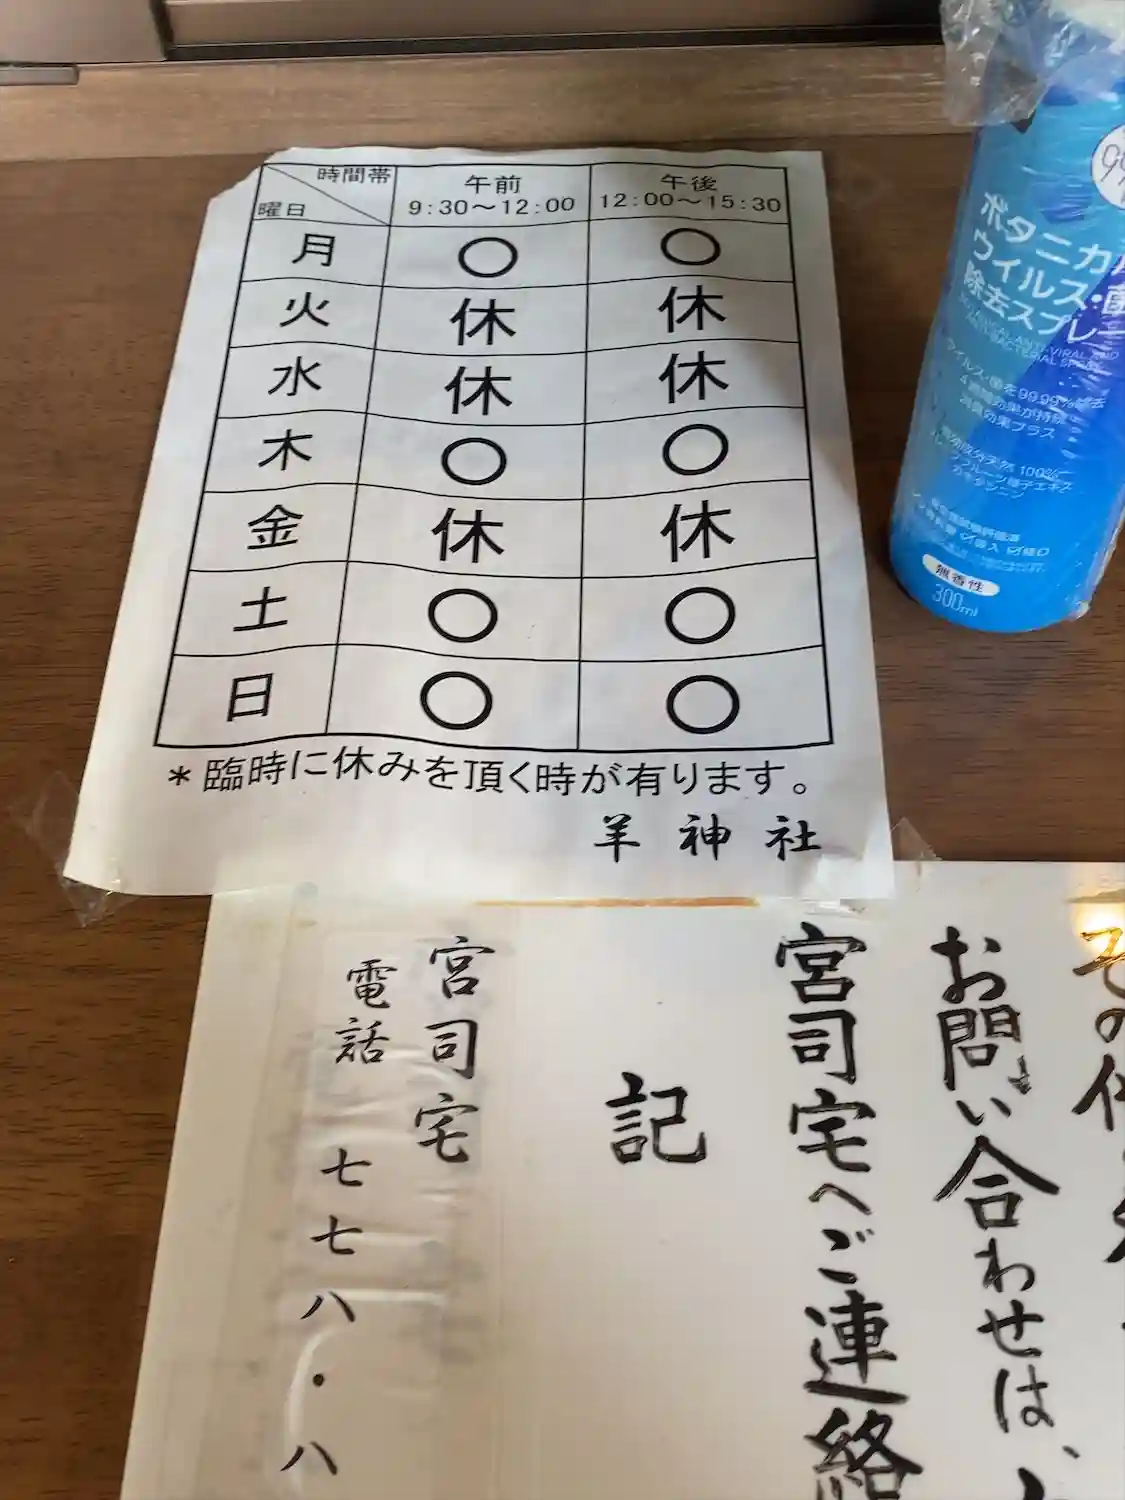 時間帯 午前 午後
曜日 9:30～12:00 12:00～15:30
月 〇 〇
火 休 休
水 休 休
木 〇 〇
金 休 休
土 〇 〇
日 〇 〇
＊臨時に休みを頂く時が有ります。
羊神社
お問い合わせは、
宮司宅へご連絡
記
宮司宅
電話 七七八・八
ボタニカル
ウイルス・菌
除去スプレー
無香性
300ml